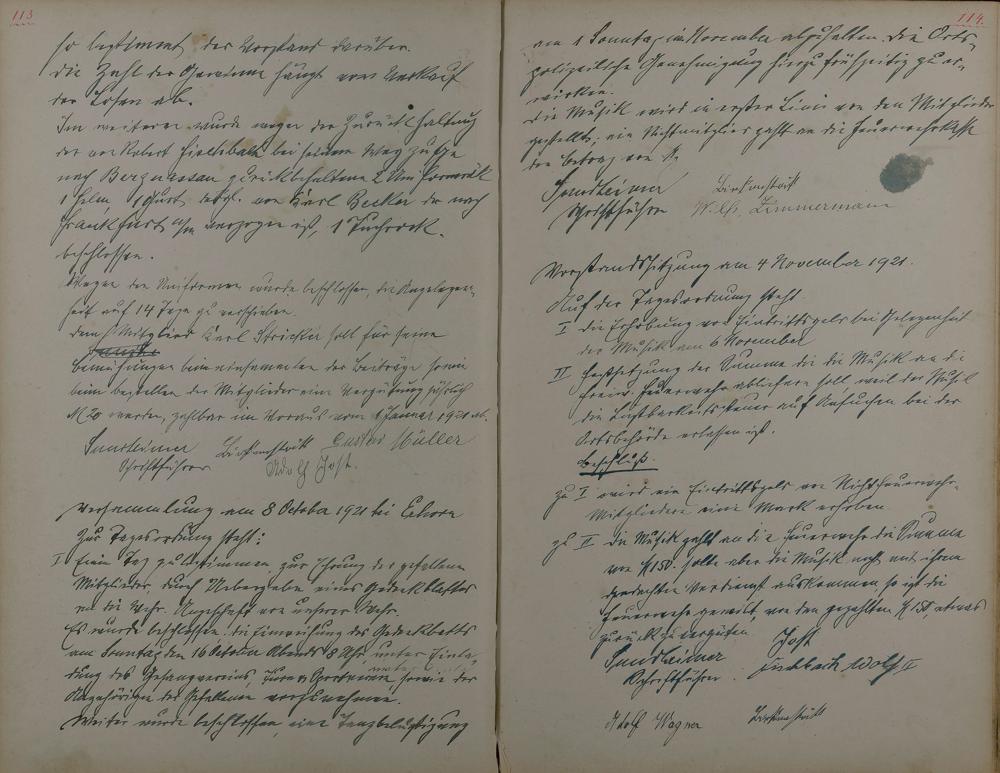 113
so bestimmt der Vorstand darüber.
Die Zahl der Gewinne hängt vom Verkauf
der Losen ab.
Im weiteren wurde wegen der Zurückhaltung
der von Robert bei seinem Wegzuge
nach zurückbehaltenen 2 Uniformröck
1 Helm, 1 Gurt, desgl. von Karl Becker der nach
Frankfurt a/m verzogen ist, 1 Tuchrock.
beschlossen.
Wegen den Uniformen wurde beschlossen, die Angelegen-
heit auf 14 Tage zu verschieben.
Dem Mitglied Karl Stricker soll für seine
bemühungen beim einsammeln der Beiträge sowie
beim bestellen der Mitglieder eine Vergütung jährlich
M 20 werden, zahlbar im Voraus vom 1 Januar 1921 ab.
Sundheimer Birkenstock Gustav Müller
Schriftführer Adolf Jost.
Versammlung am 8 October 1921 bei
Zur Tagesordnung steht:
I Einen Tag zu bestimmen, zur Ehrung der gefallenen
Mitglieder, durch Uebergabe eines Gedenkblattes
an die Wehr. Angeschafft von unserer Wehr.
Es wurde beschlossen, die Einweihung des Gedenkblatts
am Sonntag den 16 October Abends 8 Uhr unter Einla-
dung des Gesangvereins, Turn u. sowie der
Angehörigen der Gefallenen vorzunehmen.
Weiter wurde beschlossen, eine Tanzbelustigung
114.
am 1 Sonntag im November abzuhalten. Die Orts-
polizeiliche Genehmigung hierzu frühzeitig zu er-
wirken.
Die Musik wird in erster Linie von den Mitglieder
gestellt; ein Nichtmitglied zahlt an die Feuerwehrkasse
den Betrag von M.
Sundheimer Birkenstock
Schriftführer Wilh. Zimmermann
Vorstandssitzung am 4 November 1921.
Auf der Tagesordnung steht
I Die Erhebung von Eintrittsgeld bei Gelegenheit
der Musik am 6 November
II Festsetzung der Summe die die Musik an die
freiw. Feuerwehr abliefern soll weil der Musik
die Lustbarkeitssteuer auf Ansuchen bei der
Ortsbehörde erlassen ist.
Beschluß.
zu I wird ein Eintrittsgeld von Nichtfeuerwehr-
Mitglieder eine Mark erhoben.
zu II Die Musik zahlt an die Feuerwehr die Summe
von M 150. sollte aber die Musik nicht mit ihrem
gedachten Verdienst auskommen, so ist die
Feuerwehr gewillt, von den gezahlten M 150, etwas
zurück zu vergüten.
Sundheimer Jost
Schriftführer. Wolf II
Adolf Wagner Birkenstock